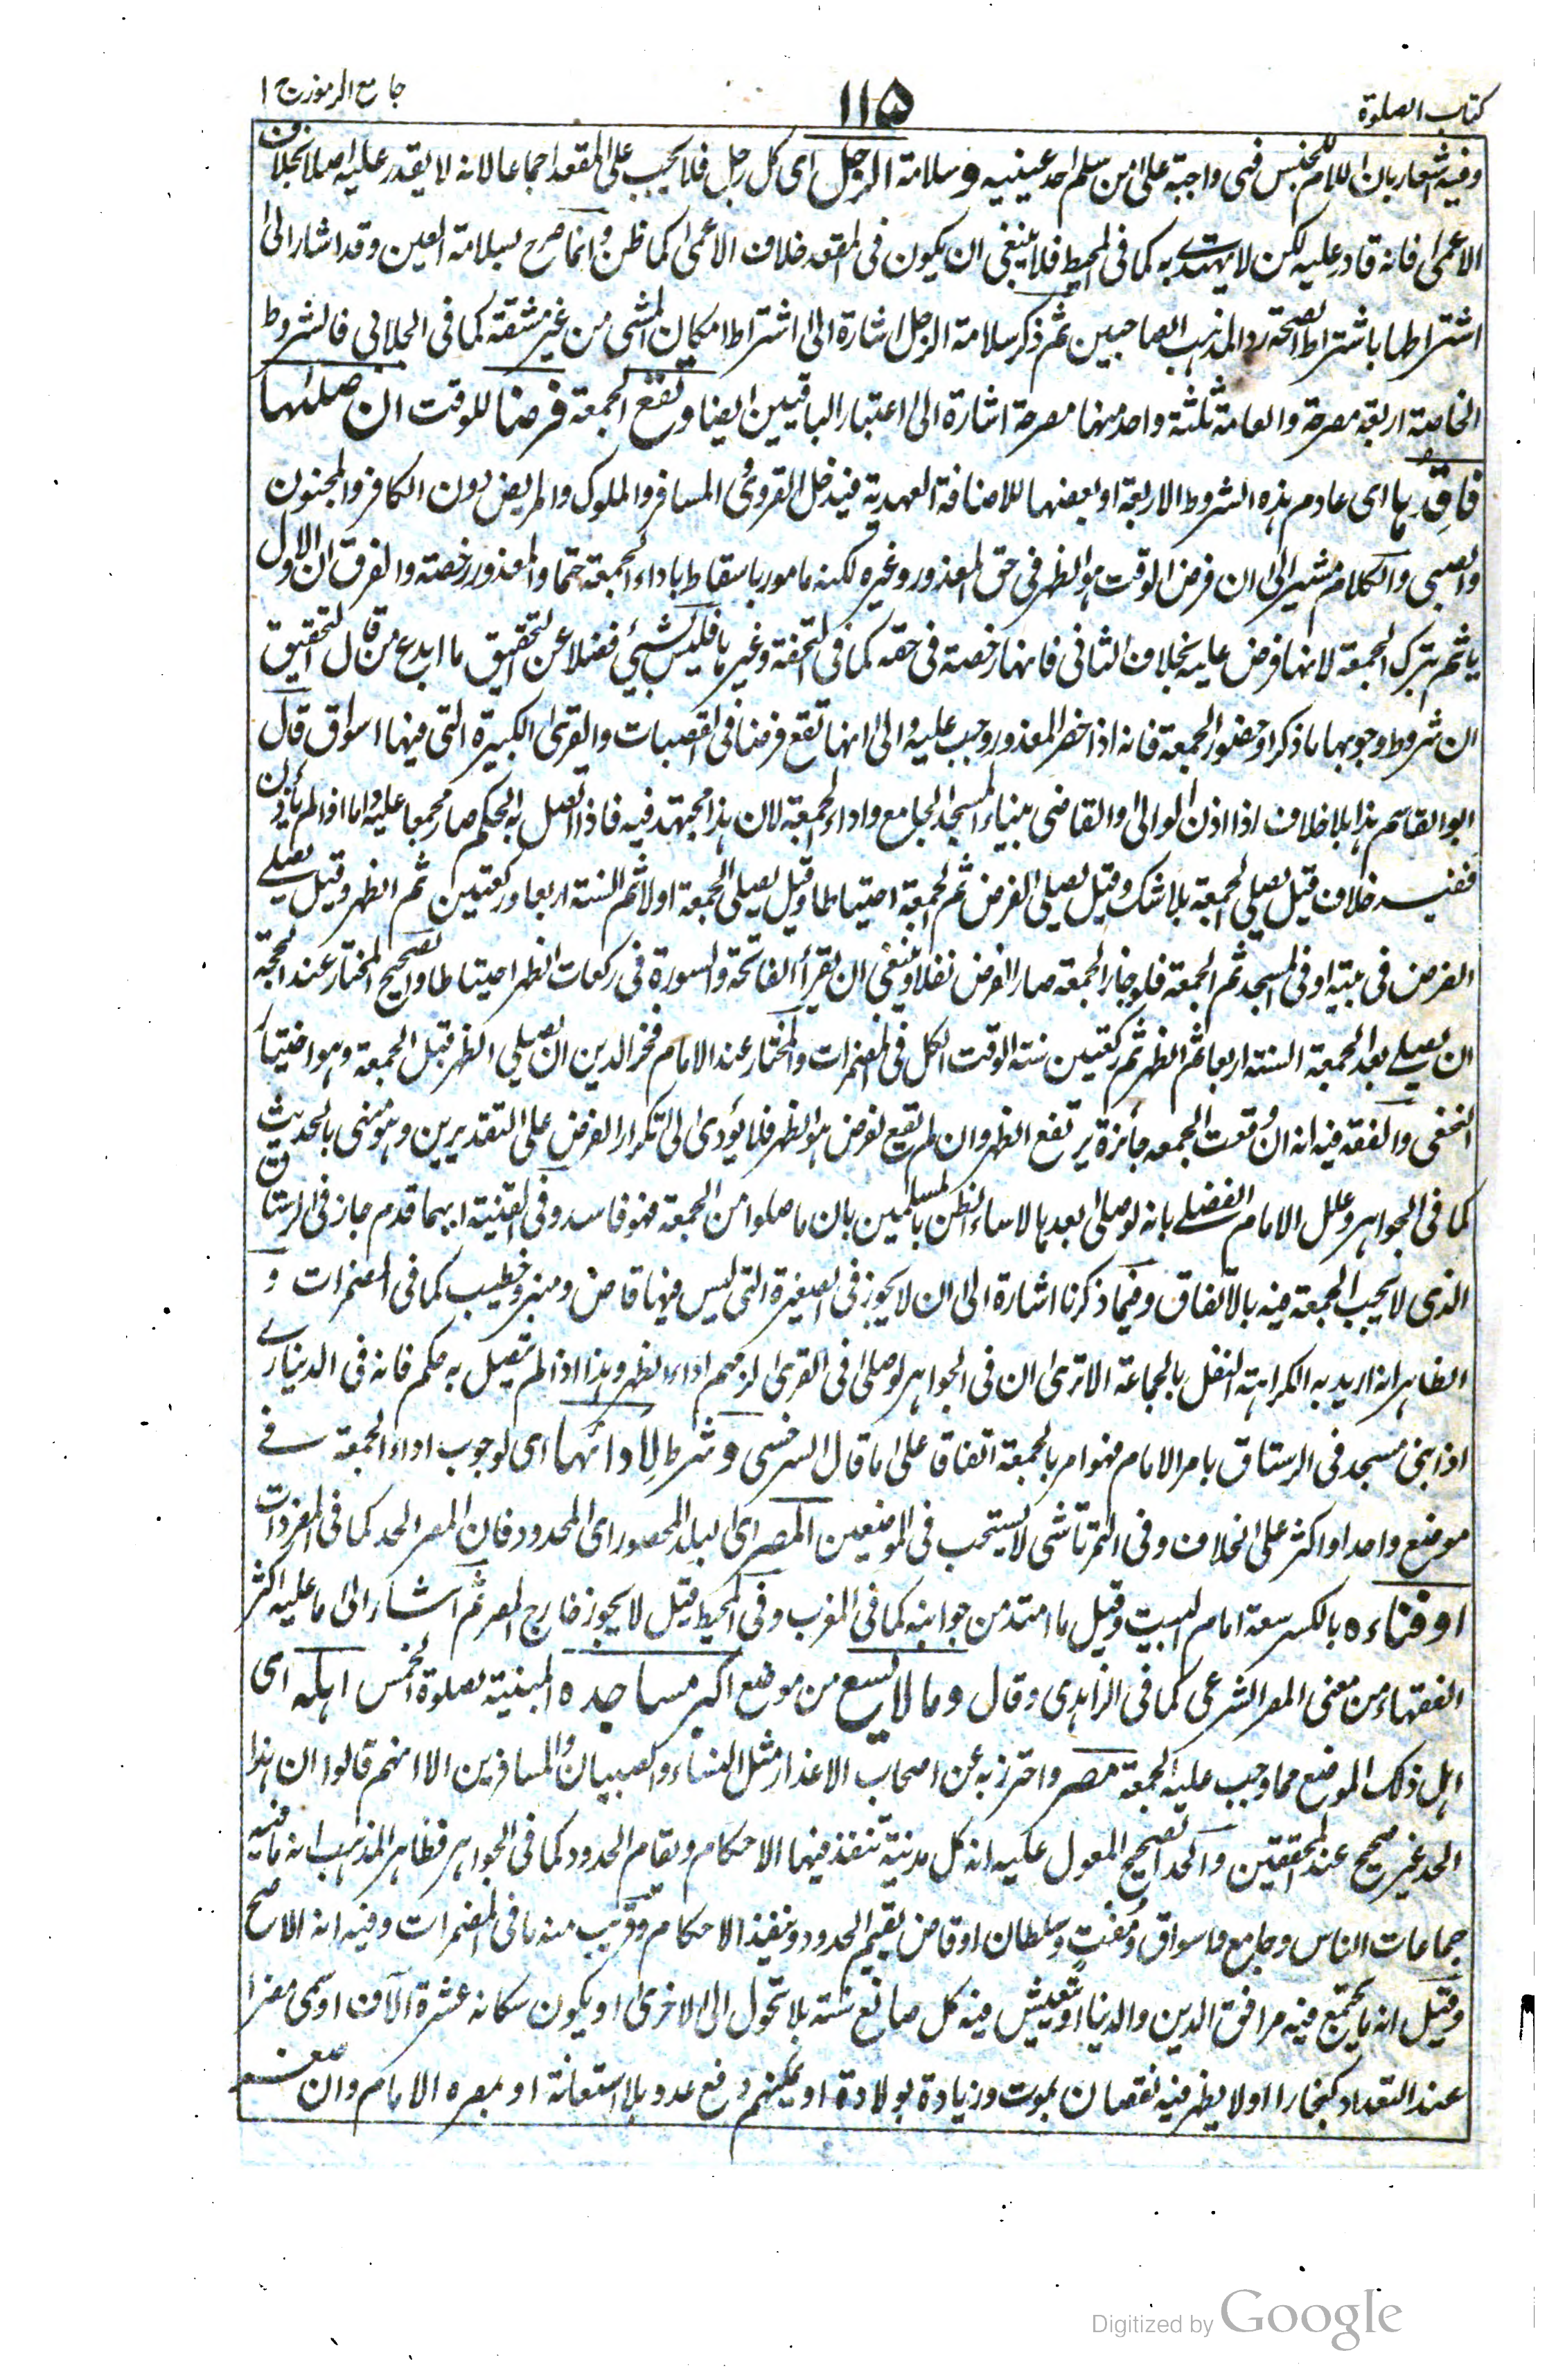 كتاب الصلوة
١١٥
جامع الرموز ج ١
وفيه اشعار بان اللام للجنس فهى واجبة على من سلم احد عينيه و سلامة الرجل اى كل رجل فلا يجب على المقعد اجماعا لانه لا يقدر عليه اصلا بخلاف
الاعمى فانه قادر عليه لكن لا يهتدى به كما فى المحيط فلا ينبغى ان يكون فى المقعد خلاف الاعمى كما ظن وانما صرح بسلامة العين وقد اشار الى
اشتراطها باشتراط الصحة ردا لمذهب الصاحبين ثم ذكر سلامة الرجل اشارة الى اشتراط امكان المشى من غير مشقة كما فى الجلابى فالشروط
الخاصة اربعة مصرحة والعامة ثلثة واحد منها مصرحة اشارة الى اعتبار الباقيين ايضا و تقع الجمعة فرضا للوقت ان صلاها
فاقدها اى عادم هذه الشروط الاربعة او بعضها للاضافة العهدية فيدخل القروى المسافر والمملوك والمريض دون الكافر والمجنون
والصبى والكلام مشير الى ان فرض الوقت هو الظهر فى حق المعذور وغيره لكنه مامور باسقاطه باداء الجمعة حتما والمعذور رخصة والفرق ان الاول
ياثم بترك الجمعة لانها فرض عليه بخلاف الثانى فانها رخصة فى حقه كما فى التحفة وغيرها فليس بشيئ فضلا عن التحقيق ما ابدع من قال التحقيق
ان شروط وجوبها ما ذكر او حضور الجمعة فانه اذا حضر المعذور وجب عليه والى انها تقع فرضا فى القصبات والقرى الكبيرة التى فيها اسواق قال
ابو القاسم هذا بلا خلاف اذا اذن الوالى والقاضى ببناء المسجد الجامع واداء الجمعة لان هذا مجتهد فيه فاذا اتصل به الحكم صار مجمعا عليه واما اذا لم يأذن
ففيه خلاف قيل يصلى الجمعة بلا شك وقيل يصلى الفرض ثم الجمعة احتياطا وقيل يصلى الجمعة اولا ثم السنة اربعا وركعتين ثم الظهر وقيل يصلى
الفرض فى بيته او فى المسجد ثم الجمعة فلو جاز الجمعة صار الفرض نفلا وينبغى ان يقرأ الفاتحة والسورة فى ركعات الظهر احتياطا والصحيح المختار عند الحجة
ان يصلى بعد الجمعة السنة اربعا ثم الظهر ثم ركعتين سنة الوقت الكل فى المضمرات والمختار عند الامام فخر الدين ان يصلى الظهر قبل الجمعة وهو اختيار
النخعى والفقه فيه انه ان وقعت الجمعه جائزة يرتفع الظهر وان لم تقع لفرض هو الظهر فلا يؤدى الى تكرار الفرض على التقديرين وهو منهى بالحديث
كما فى الجواهر وعلل الامام الفضلى بانه لو صلى بعدها لاساء الظن بالمسلمين بان ما صلوا من الجمعة فهو فاسد وفى القنية ايهما قدم جاز فى الرستاق
الذى لا يجب الجمعة فيه بالاتفاق وفيما ذكرنا اشارة الى ان لا يجوز فى الصغيرة التى ليس فيها قاض ومنبر وخطيب كما فى المضمرات و
الظاهر انه اريد به الكراهة النفل بالجماعة الا ترى ان فى الجواهر لو صلى فى القرى لزمهم اداء الظهر وهذا اذا لم يتصل به حكم فانه فى الدينارى
اذا بنى مسجد فى الرستاق بامر الامام فهو امر بالجمعة اتفاقا على ما قال السرخسى و شرط لادائها اى لوجوب اداء الجمعة فى
موضع واحد او اكثر على الخلاف وفى التمرتاشى لا يستحب فى الموضعين المصر اى البلد المحصور اى المحدود فان المصر الحد كما فى المفردات
او فناءه بالكسر سعة امام البيت وقيل ما امتد من جوانبه كما فى المغرب وفى المحيط قيل لا يجوز خارج المصر ثم اشار الى ما عليه اكثر
الفقهاء من معنى المصر الشرعى كما فى الزاهدى وقال وما لا يسع من موضع اكبر مساجده المبنية لصلوة الخمس اهله اى
اهل ذلك الموضع مما وجب عليه الجمعة مصر واحترز به عن اصحاب الاعذار مثل النساء والصبيان والمسافرين الا انهم قالوا ان هذا
الحد غير صحيح عند المحققين والحد الصحيح المعول عليه انه كل مدينة تنفذ فيها الاحكام ويقام الحدود كما فى الجواهر فظاهر المذهب انه ما فيه
جماعات الناس وجامع واسواق ومفتٍ وسلطان او قاض يقيم الحدود وينفذ الاحكام وقريب منه ما فى المضمرات وفيه انه الاصح
وقيل انه ما يجتمع فيه مرافق الدين والدنيا او يتعيش فيه كل صانع سنة بلا تحول الى الاخرى او يكون سكانه عشرة الآف او يسمى مصرا
عند التعداد كبخارا او لا يظهر فيه نقصان بموت وزيادة بولادة او يمكنهم دفع عدو بلا استعانة او بمصره الامام وان صغر
Digitized by Google